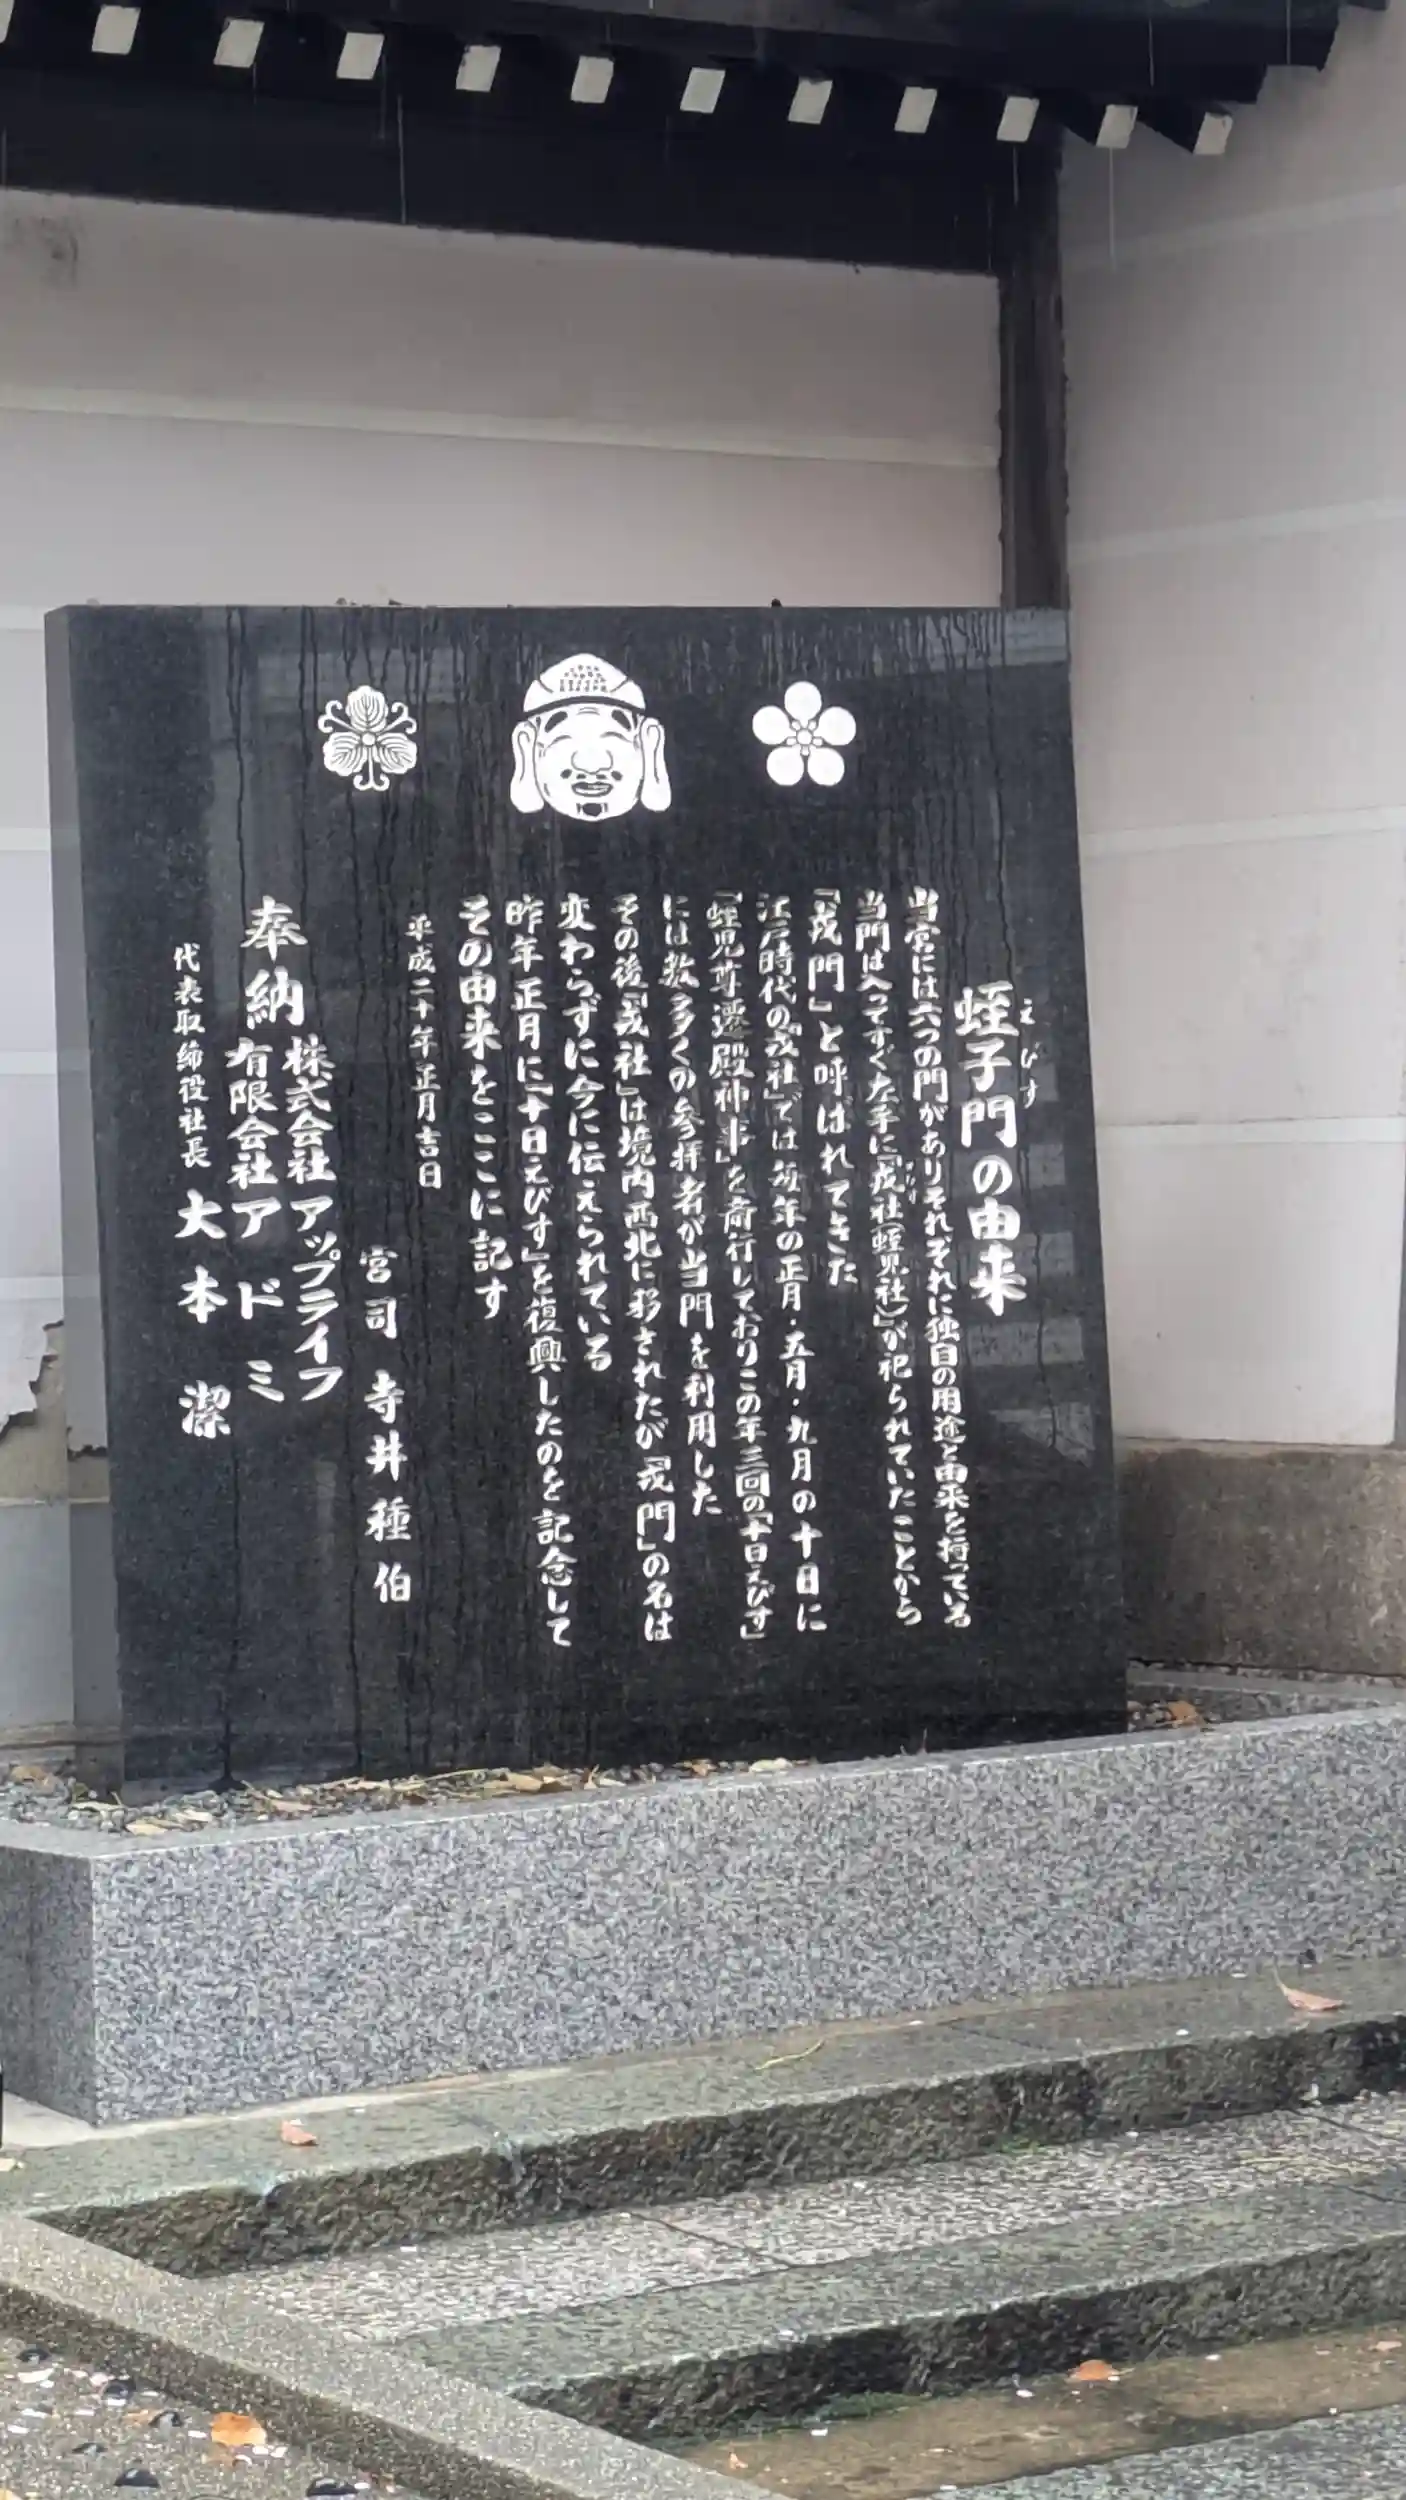 えびす
蛭子門の由来
当宮には六つの門がありそれぞれに独自の用途と由来を持っている
当門は入ってすぐ左手に「戎社(蛭児社)」が祀られていたことから
「戎門」と呼ばれてきた
江戸時代の「戎社」では毎年の正月・五月・九月の十日に
「蛭児尊遷殿神事」を斎行しておりこの年三回の「十日えびす」
には数多くの参拝者が当門を利用した
その後「戎社」は境内西北に移されたが「戎門」の名は
変わらずに今に伝えられている
昨年正月に「十日えびす」を復興したのを記念して
その由来をここに記す
平成二十年正月吉日
宮司 寺井種伯
奉納 株式会社アップライフ
有限会社アドミ
代表取締役社長 大本潔